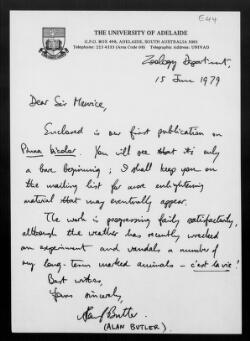 E44
THE UNIVERSITY OF ADELAIDE
G.P.O. BOX 498, ADELAIDE, SOUTH AUSTRALIA 5001
Telephone: 223 4333 (Area Code 08) Telegrams: UNIVAD
Zoology Department,
15 June 1979
Dear Sir Maurice,
Enclosed is our first publication on
Pinna bicolor. You will see that it's only
a bare beginning; I shall keep you on
the mailing list for more enlightening
material that may eventually appear.
The work is progressing fairly satisfactorily,
although the weather has recently wrecked
an experiment and vandals a number of
my long-term marked animals - c'est la vie!
Best wishes,
Yours sincerely,
Alan J Butler
(ALAN BUTLER)